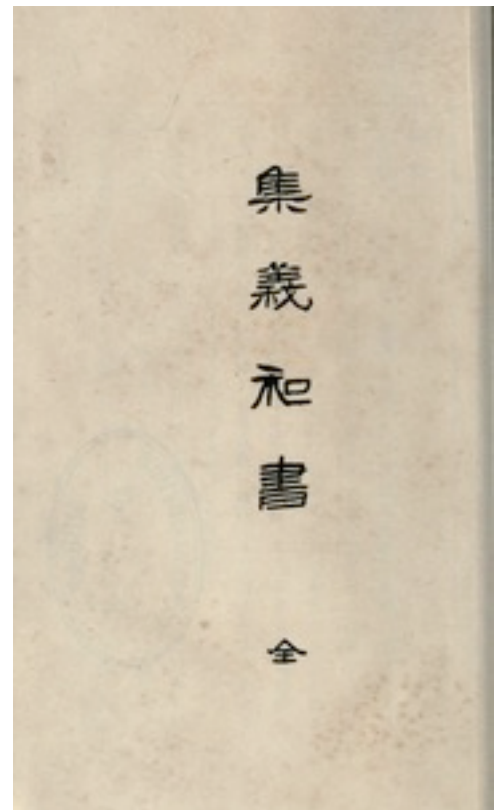 集義和書 全